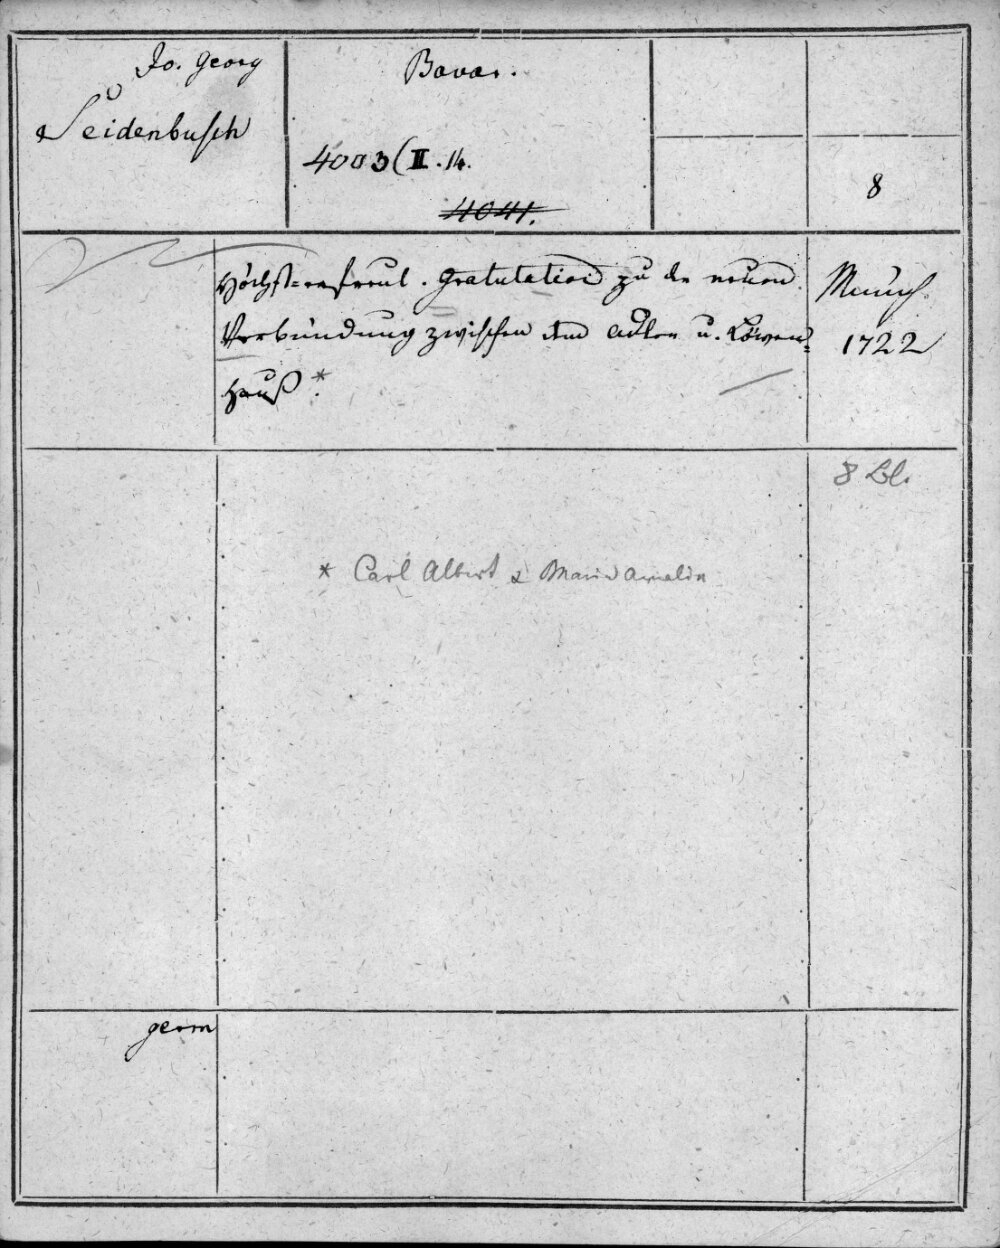 Jo. Georg
Seidenbusch
Bavar.
4003 (II.14.
4041.
8
Höchst=erfreul. Gratulation zu der neuen
Verbündung zwischen dem Adler u. Löwen=
Hauß.*
Münch.
1722
8 Bl.
* Carl Albert & Maria Amalia
germ